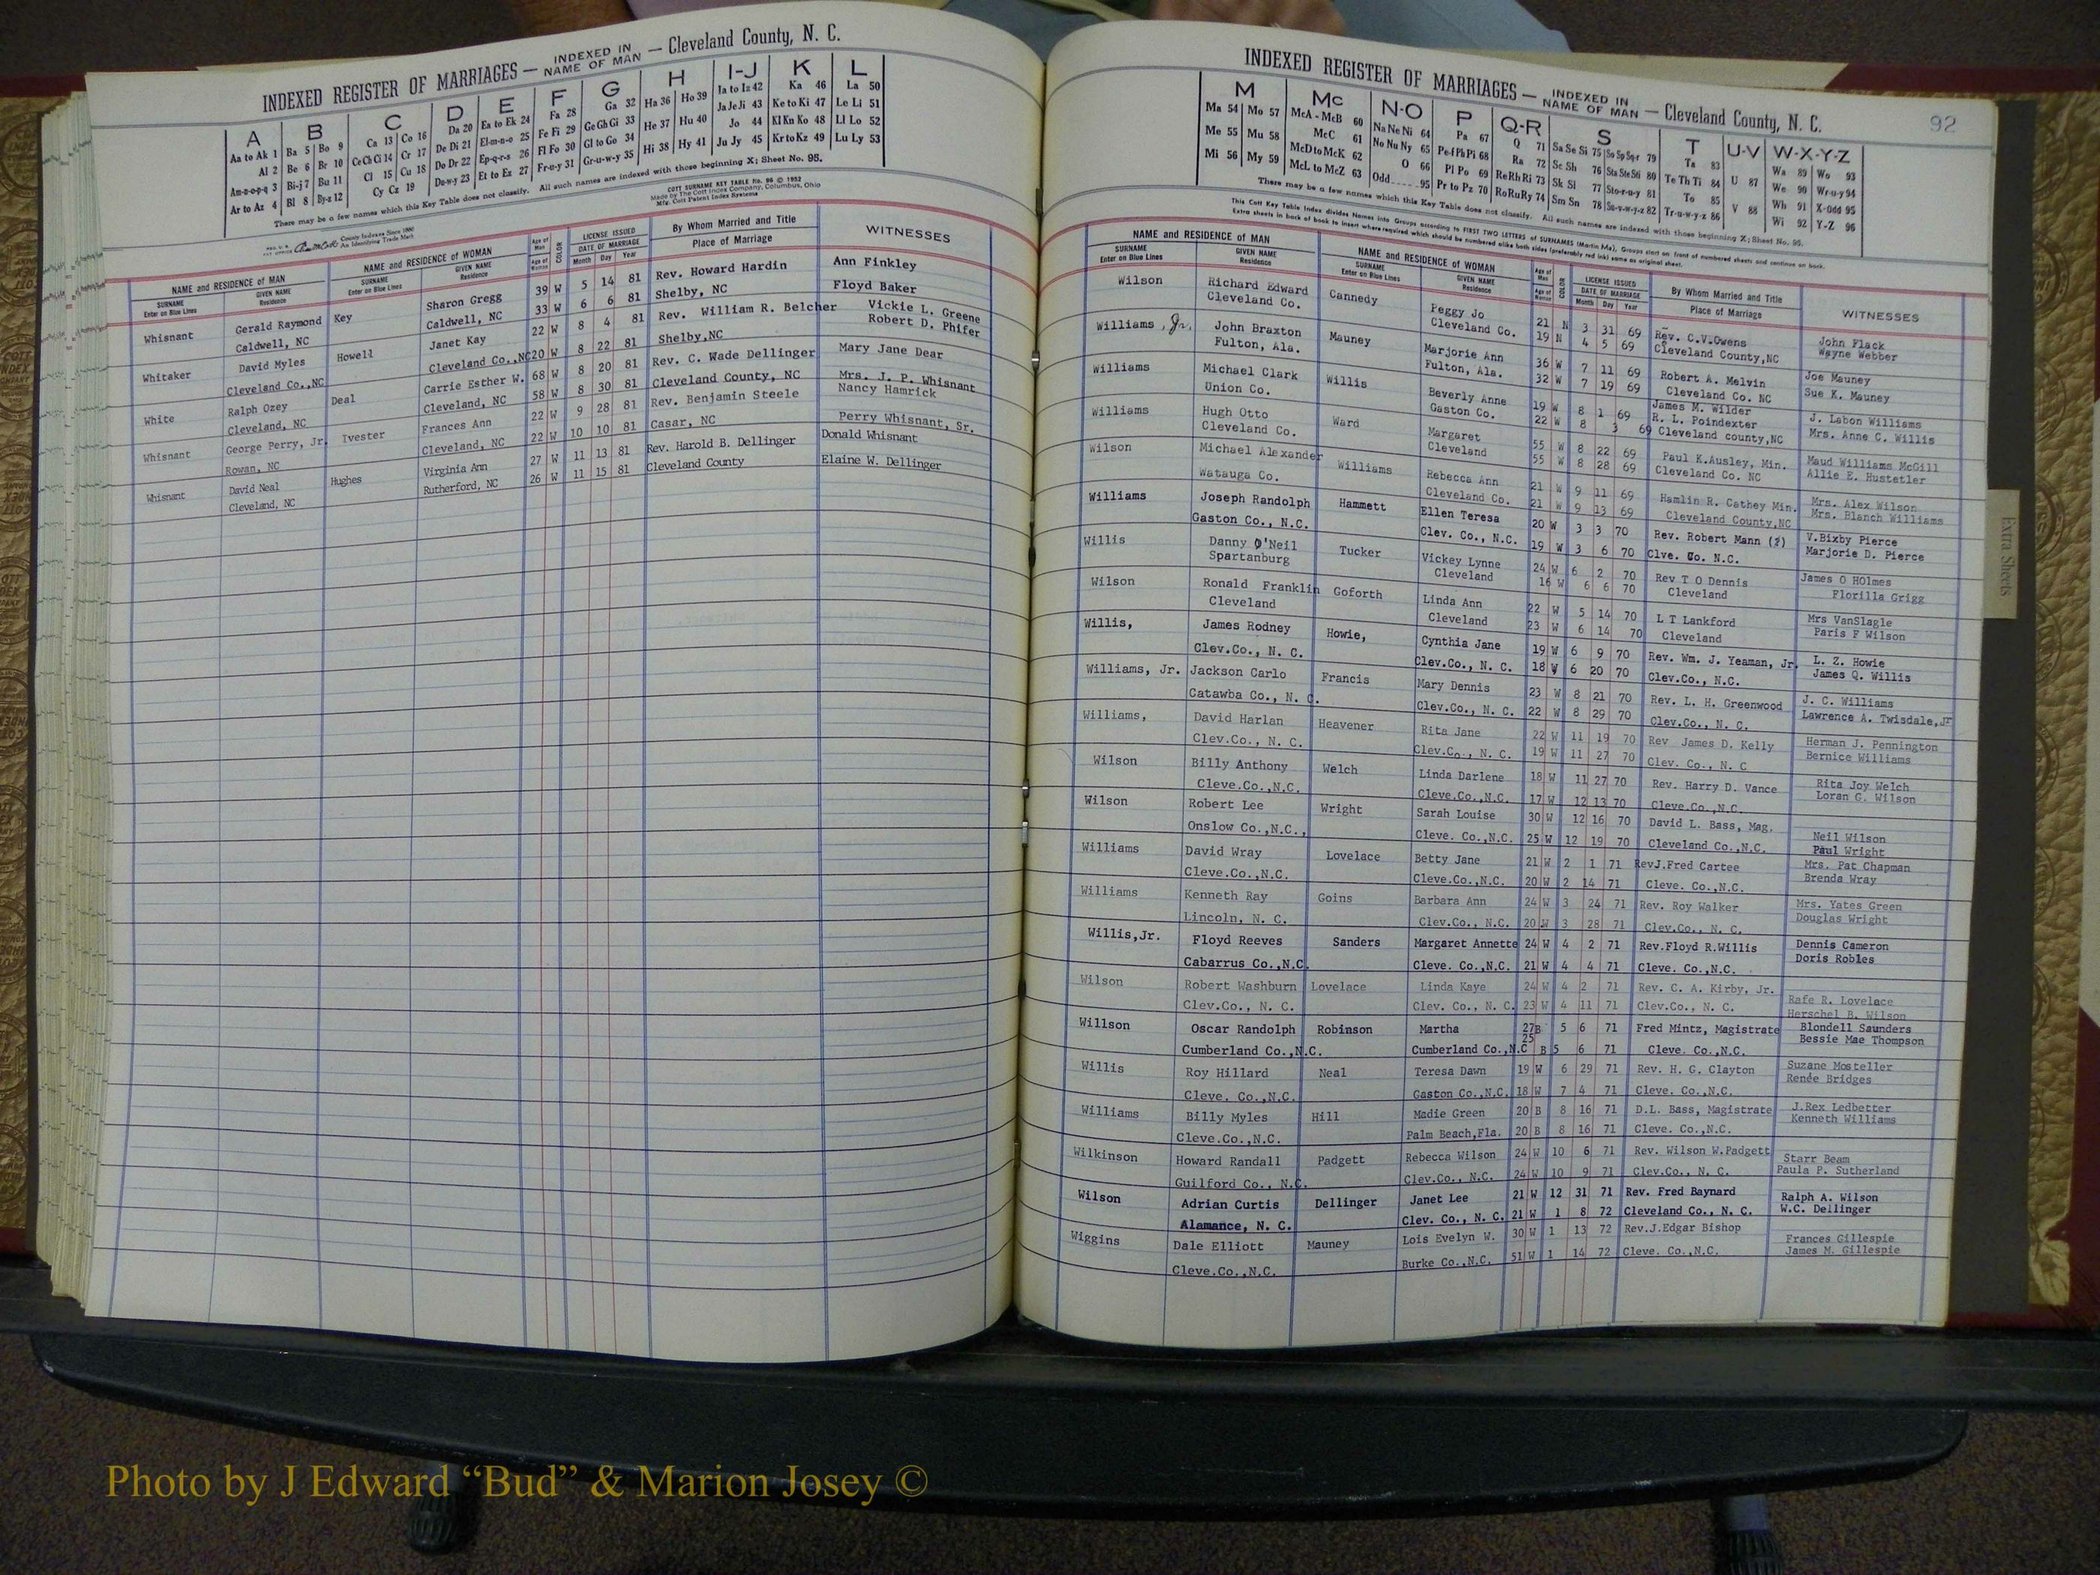 INDEXED REGISTER OF MARRIAGES — INDEXED IN NAME OF MAN — Cleveland County, N. C.
A B C D E F G H I-J K L
Aa to Ak 1 Ba 5 Bo 9 Ca 13 Co 16 Da 20 Ea to Ek 24 Fa 28 Ga 32 Ha 36 Ho 39 Ia to Iz 42 Ka 46 La 50
Al 2 Be 6 Br 10 Ce Ch Ci 14 Cr 17 De Di 21 El-m-n-o 25 Fe Fi 29 Ge Gh Gi 33 He 37 Hu 40 Ja Je Ji 43 Ke to Ki 47 Le Li 51
Am-n-o-p-q 3 Bi-j 7 Bu 11 Cl 15 Cu 18 Do Dr 22 Ep-q-r-s 26 Fl Fo 30 Gl to Go 34 Hi 38 Hy 41 Jo 44 Kl Kn Ko 48 Ll Lo 52
Ar to Az 4 Bl 8 By-z 12 Cy Cz 19 Du-w-y 23 Et to Ez 27 Fr-u-y 31 Gr-u-w-y 35 Ju Jy 45 Kr to Kz 49 Lu Ly 53
There may be a few names which this Key Table does not classify. All such names are indexed with those beginning X; Sheet No. 95.
COTT SURNAME KEY TABLE No. 96 © 1952
Made by The Cott Index Company, Columbus, Ohio
Mfg. Cott Patent Index Systems
County Indexes Since 1880
An Identifying Trade Mark
NAME and RESIDENCE OF MAN NAME and RESIDENCE OF WOMAN Age of Man Age of Woman COLOR LICENSE ISSUED DATE OF MARRIAGE By Whom Married and Title WITNESSES
SURNAME Enter on Blue Lines GIVEN NAME Residence SURNAME Enter on Blue Lines GIVEN NAME Residence Month Day Year Place of Marriage
Whisnant Gerald Raymond Key Sharon Gregg 39 W 5 14 81 Rev. Howard Hardin Ann Finkley
Caldwell, NC Caldwell, NC 33 W 6 6 81 Shelby, NC Floyd Baker
Whitaker David Myles Howell Janet Kay 22 W 8 4 81 Rev. William R. Belcher Vickie L. Greene
Cleveland Co.,NC Cleveland Co.,NC 20 W 8 22 81 Shelby,NC Robert D. Phifer
White Ralph Ozey Deal Carrie Esther W. 68 W 8 20 81 Rev. C. Wade Dellinger Mary Jane Dear
Cleveland, NC Cleveland, NC 58 W 8 30 81 Cleveland County, NC Mrs. J. P. Whisnant
Whisnant George Perry, Jr. Ivester Frances Ann 22 W 9 28 81 Rev. Benjamin Steele Nancy Hamrick
Rowan, NC Cleveland, NC 22 W 10 10 81 Casar, NC Perry Whisnant, Sr.
Whisnant David Neal Hughes Virginia Ann 27 W 11 13 81 Rev. Harold B. Dellinger Donald Whisnant
Cleveland, NC Rutherford, NC 26 W 11 15 81 Cleveland County Elaine W. Dellinger
INDEXED REGISTER OF MARRIAGES — INDEXED IN NAME OF MAN — Cleveland County, N. C. 92
M Mc N-O P Q-R S T U-V W-X-Y-Z
Ma 54 Mo 57 McA - McB 60 Na Ne Ni 64 Pa 67 Q 71 Sa Se Si 75 So Sp Sq-r 79 Ta 83 Wa 89 Wo 93
Me 55 Mu 58 McC 61 No Nu Ny 65 Pe-f Ph Pi 68 Ra 72 Sc Sh 76 Sta Ste Sti 80 Te Th Ti 84 U 87 We 90 Wr-u-y 94
Mi 56 My 59 McD to McK 62 O 66 Pl Po 69 Re Rh Ri 73 Sk Sl 77 Sto-r-u-y 81 To 85 Wh 91 X-Odd 95
McL to McZ 63 Odd 95 Pr to Pz 70 Ro Ru Ry 74 Sm Sn 78 Su-v-w-y-z 82 Tr-u-w-y-z 86 V 88 Wi 92 Y-Z 96
There may be a few names which this Key Table does not classify. All such names are indexed with those beginning X; Sheet No. 95.
This Cott Key Table Index divides Names into Groups according to FIRST TWO LETTERS of SURNAMES (Martin Ma). Groups start on front of numbered sheets and continue on back.
Extra sheets in back of book to insert where required which should be numbered alike both sides (preferably red ink) same as original sheet.
NAME and RESIDENCE OF MAN NAME and RESIDENCE OF WOMAN Age of Man Age of Woman COLOR LICENSE ISSUED DATE OF MARRIAGE By Whom Married and Title WITNESSES
SURNAME Enter on Blue Lines GIVEN NAME Residence SURNAME Enter on Blue Lines GIVEN NAME Residence Month Day Year Place of Marriage
Wilson Richard Edward Cannedy Peggy Jo 21 N 3 31 69 Rev. C.V.Owens John Flack
Cleveland Co. Cleveland Co. 19 N 4 5 69 Cleveland County,NC Wayne Webber
Williams, Jr. John Braxton Mauney Marjorie Ann 36 W 7 11 69 Robert A. Melvin Joe Mauney
Fulton, Ala. Fulton, Ala. 32 W 7 19 69 Cleveland Co. NC Sue K. Mauney
Williams Michael Clark Willis Beverly Anne 19 W 8 1 69 James M. Wilder R. L. Poindexter J. Labon Williams
Union Co. Gaston Co. 22 W 8 3 69 Cleveland county,NC Mrs. Anne C. Willis
Williams Hugh Otto Ward Margaret 55 W 8 22 69 Paul K.Ausley, Min. Maud Williams McGill
Cleveland Co. Cleveland 55 W 8 28 69 Cleveland Co. NC Allie E. Hustetler
Wilson Michael Alexander Williams Rebecca Ann 21 W 9 11 69 Hamlin R. Cathey Min. Mrs. Alex Wilson
Watauga Co. Cleveland Co. 21 W 9 13 69 Cleveland County,NC Mrs. Blanch Williams
Williams Joseph Randolph Hammett Ellen Teresa 20 W 3 3 70 Rev. Robert Mann V.Bixby Pierce
Gaston Co., N.C. Clev. Co., N.C. 19 W 3 6 70 Clve. Co. N.C. Marjorie D. Pierce
Willis Danny O'Neil Tucker Vickey Lynne 24 W 6 2 70 Rev T O Dennis James O HOlmes
Spartanburg Cleveland 16 W 6 6 70 Cleveland Florilla Grigg
Wilson Ronald Franklin Goforth Linda Ann 22 W 5 14 70 L T Lankford Mrs VanSlagle
Cleveland Cleveland 23 W 6 14 70 Cleveland Paris F Wilson
Willis, James Rodney Howie, Cynthia Jane 19 W 6 9 70 Rev. Wm. J. Yeaman, Jr. L. Z. Howie
Clev.Co., N. C. Clev.Co., N. C. 18 W 6 20 70 Clev.Co., N.C. James Q. Willis
Williams, Jr. Jackson Carlo Francis Mary Dennis 23 W 8 21 70 Rev. L. H. Greenwood J. C. Williams
Catawba Co., N. C. Clev.Co., N. C. 22 W 8 29 70 Clev.Co., N. C. Lawrence A. Twisdale,Jr
Williams, David Harlan Heavener Rita Jane 22 W 11 19 70 Rev James D. Kelly Herman J. Pennington
Clev.Co., N. C. Clev.Co., N. C. 19 W 11 27 70 Clev. Co., N. C Bernice Williams
Wilson Billy Anthony Welch Linda Darlene 18 W 11 27 70 Rev. Harry D. Vance Rita Joy Welch
Cleve.Co.,N.C. Cleve.Co.,N.C. 17 W 12 13 70 Cleve.Co.,N.C. Loran G. Wilson
Wilson Robert Lee Wright Sarah Louise 30 W 12 16 70 David L. Bass, Mag. Neil Wilson
Onslow Co.,N.C., Cleve. Co.,N.C. 25 W 12 19 70 Cleveland Co.,N.C. Paul Wright
Williams David Wray Lovelace Betty Jane 21 W 2 1 71 RevJ.Fred Cartee Mrs. Pat Chapman
Cleve.Co.,N.C. Cleve.Co.,N.C. 20 W 2 14 71 Cleve. Co.,N.C. Brenda Wray
Williams Kenneth Ray Goins Barbara Ann 24 W 3 24 71 Rev. Roy Walker Mrs. Yates Green
Lincoln, N. C. Clev.Co., N.C. 20 W 3 28 71 Clev.Co., N. C. Douglas Wright
Willis,Jr. Floyd Reeves Sanders Margaret Annette 24 W 4 2 71 Rev.Floyd R.Willis Dennis Cameron
Cabarrus Co.,N.C. Cleve. Co.,N.C. 21 W 4 4 71 Cleve. Co.,N.C. Doris Robles
Wilson Robert Washburn Lovelace Linda Kaye 24 W 4 2 71 Rev. C. A. Kirby, Jr. Rafe R. Lovelace
Clev.Co., N. C. Clev. Co., N. C. 23 W 4 11 71 Clev.Co., N. C. Herschel B. Wilson
Willson Oscar Randolph Robinson Martha 27 B 5 6 71 Fred Mintz, Magistrate Blondell Saunders
Cumberland Co.,N.C. Cumberland Co.,N.C 25 B 5 6 71 Cleve. Co.,N.C. Bessie Mae Thompson
Willis Roy Hillard Neal Teresa Dawn 19 W 6 29 71 Rev. H. G. Clayton Suzane Mosteller
Cleve. Co.,N.C. Gaston Co.,N.C. 18 W 7 4 71 Cleve. Co.,N.C. Renée Bridges
Williams Billy Myles Hill Madie Green 20 B 8 16 71 D.L. Bass, Magistrate J.Rex Ledbetter
Cleve.Co.,N.C. Palm Beach,Fla. 20 B 8 16 71 Cleve. Co.,N.C. Kenneth Williams
Wilkinson Howard Randall Padgett Rebecca Wilson 24 W 10 6 71 Rev. Wilson W.Padgett Starr Beam
Guilford Co., N.C. Clev.Co., N.C. 24 W 10 9 71 Clev.Co., N. C. Paula P. Sutherland
Wilson Adrian Curtis Dellinger Janet Lee 21 W 12 31 71 Rev. Fred Baynard Ralph A. Wilson
Alamance, N. C. Clev. Co., N. C. 21 W 1 8 72 Cleveland Co., N. C. W.C. Dellinger
Wiggins Dale Elliott Mauney Lois Evelyn W. 30 W 1 13 72 Rev.J.Edgar Bishop Frances Gillespie
Cleve.Co.,N.C. Burke Co.,N.C. 51 W 1 14 72 Cleve. Co.,N.C. James M. Gillespie
Extra Sheets
Photo by J Edward “Bud” & Marion Josey ©